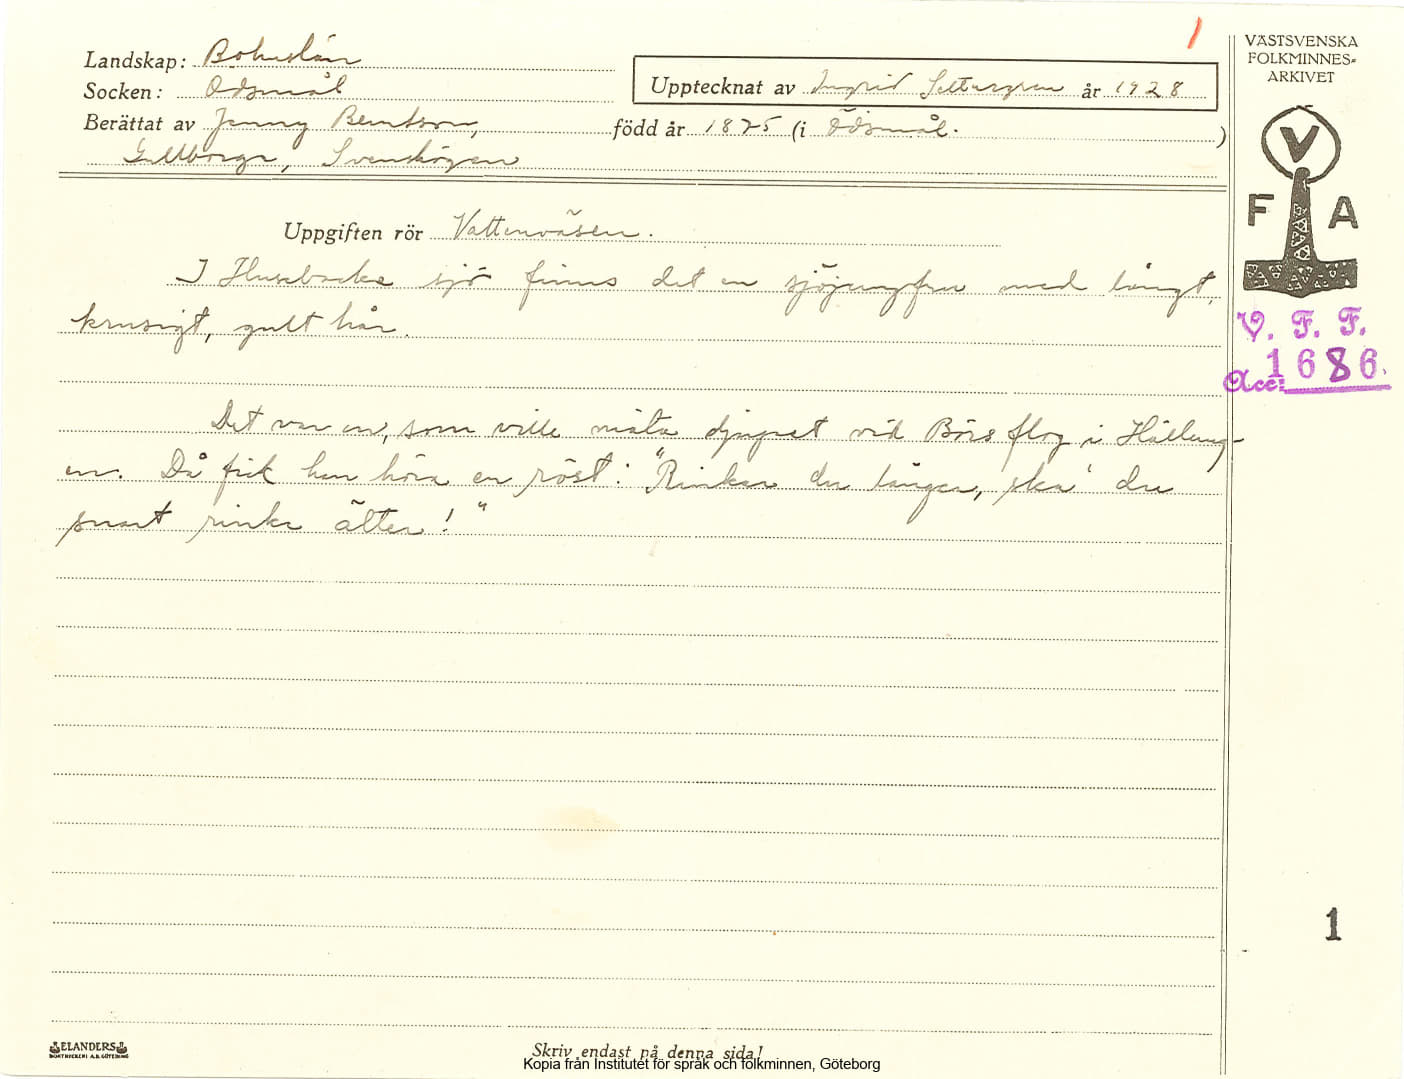 1
Landskap: Bohuslän
Socken: Ödsmål
Upptecknat av Ingrid Settergren år 1928
Berättat av Jenny Berntson, född år 1875 (i Ödsmål. )
Gullborga, Svenshögen
VÄSTSVENSKA
FOLKMINNES-
ARKIVET
V
F A
V. F. F.
Acc: 1686.
Uppgiften rör Vattenväsen.
I Husebacka sjö finns det en sjöjungfru med långt,
krusigt, gult hår.
Det var en, som ville mäta djupet vid Börs flog i Hälleung-
en. Då fick han höra en röst: "Rinkar du längre, ska' du
snart rinka ätter!"
1
ELANDERS
BOKTRYCKERI A.B. GÖTEBORG
Skriv endast på denna sida!
Kopia från Institutet för språk och folkminnen, Göteborg